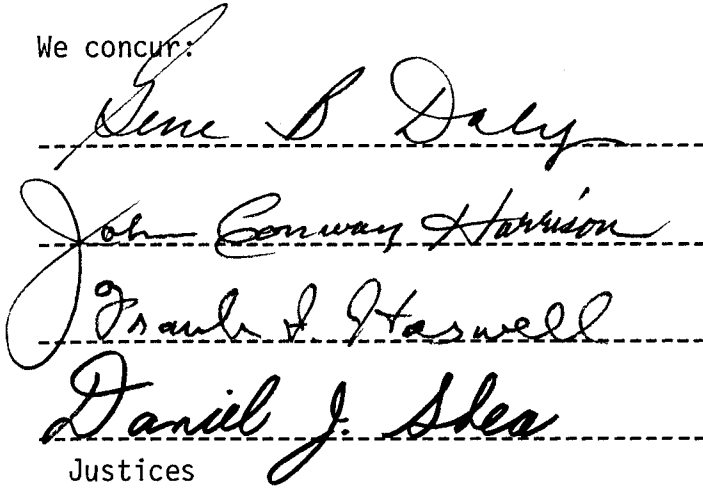 We concur:
Gene B Daly
John Conway Harrison
Frank I. Haswell
Daniel J. Shea
Justices